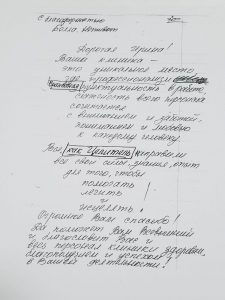 с благодарностью
Дорогая Ирина!
Ваша клиника –
это уникальное место
где профессионализм
пунктуальность в работе
всего персонала
сочетается
с вниманием и заботой,
пониманием и любовью
к каждому человеку.
Вы, как Целитель, направили
все свои силы, знания, опыт
для того, чтобы
помогать
лечить
и
исцелять!
Огромное Вам спасибо!
Да поможет Вам Всевышний
и благословит Вас и
весь персонал клиники здоровьем,
благополучием и успехом
в Вашей деятельности!